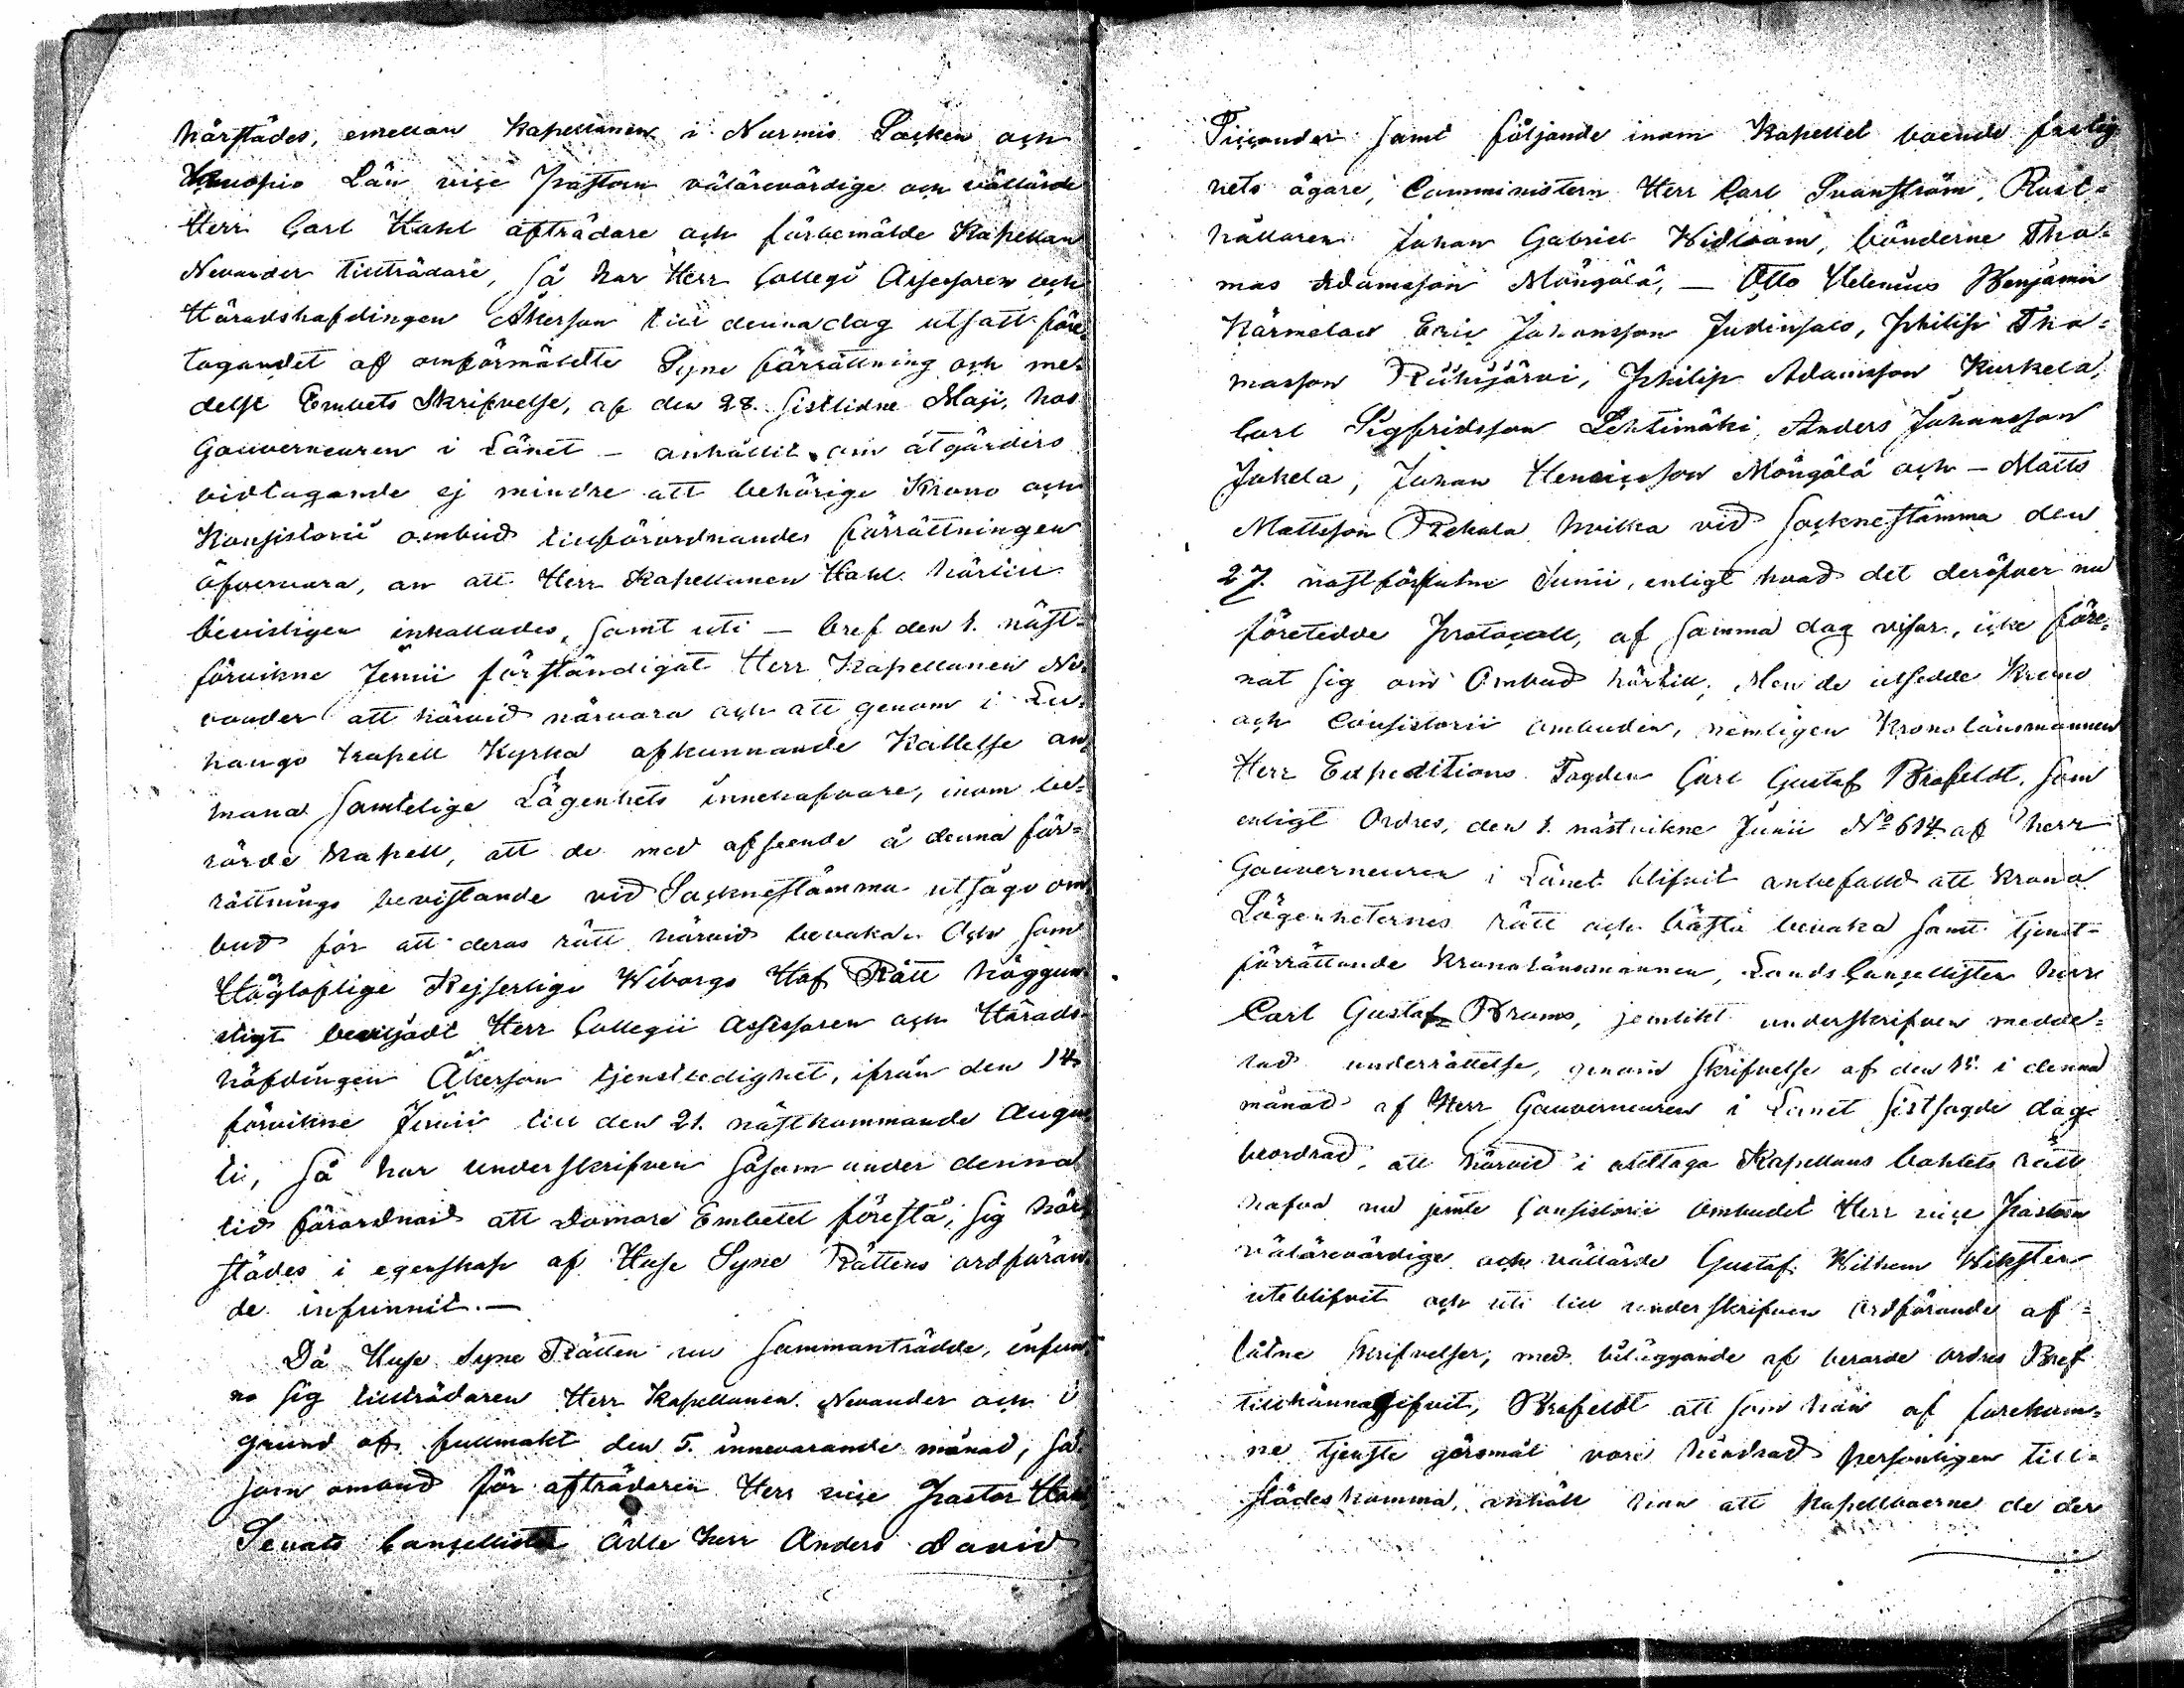 härstädes, emellan Kapellanen i Nurmis Socken och
Kuopio Län vice Pastorn välärevördige och vällärde
Herr Carl Hahl afträdare och förbemälde Kapellan
Nevander tillträdare, så har Herr Collegii Assessoren och
Häradshöfdingen Åkerson till denna dag utsatt före-
tagandet af omförmäldte Syne förrättning och me-
delst Embets Skrifvelse, af den 28. sistlidne Maji, hos
Gouverneuren i Länet – anhållit om åtgärders
vidtagande ej mindre att behörige Krono och
Konsistorii ombud tillförordnandes förrättningen
öfvervara, än att Herr Kapellanen Hahl härtill
bevisligen inkallades, samt uti – bref den 1. näst-
förvikne Junii förständigat Herr Kapellanen Ne-
vander att härvid närvara och att genom i Eu-
hango kapell Kyrka afkunnande Kallelse an-
mana samtelige Lägenhets innehafvare, inom be-
rörde kapell, att de med afseende å denna för-
rättnings bevistande vid Sockenstämma utsågo om-
bud för att deras rätt härvid bevaka. Och som
Högloflige Kejserlige Wiborgs Hof Rätt höggun-
stigt beviljadt Herr Collegii Assessoren och Härads-
höfdingen Åkerson tjenstledighet, ifrån den 14
förvikne Junii till den 21. nästkommande Augus
ti, så har underskrifven såsom under denna
tid förordnad att Domare Embetet förestå, sig här-
städes i egenskap af Huse Syne Rättens ordföran-
de infunnit. –
Då Huse Syne Rätten nu sammanträdde, infun-
no sig tillträdaren Herr Kapellanen Nevander och i
grund af fullmakt den 5. innevarande månad, så-
som ombud för afträdaren Herr vice Pastor Hahl
Senats Cancellisten Ädle herr Anders David
Ticcander samt följande inom Kapellet boende fastig-
hets ägare, Comministern Herr Carl Svanström, Rust-
hållaren Johan Gabriel Widbom, bönderne Tho-
mas Adamsson Möngälä, – Otto Helenius Benjamin
Kärmälä Eric Johansson Judinsalo, Philip Tho-
masson Riihijärvi, Philip Adamsson Kurkela,
Carl Sigfridsson Lehtimäki, Anders Johansson
Jokela, Johan Henricsson Möngälä och – Matts
Mattsson Pekala hvilka vid sockenstämma den
27. nästförflutne Junii, enligt hvad det deröfver nu
företedde Protocoll, af samma dag visar, icke före-
nat sig om Ombud härtill; Men de utsedde Krono
och Consistorii ombuden, nemligen Kronolänsmannen
Herr Expeditions Fogden Carl Gustaf Brofeldt, som
enligt Ordres, den 1. nästvikne Junii No 614 af herr
Gouverneuren i Länet blifvit anbefalld att krono
Lägenheternes rätt och bästa bevaka samt tjenst-
förrättande Kronolänsmannen, Lands Cancellisten herr
Carl Gustaf Brams, jemlikt underskrifven medde-
lad underrättelse, genom skrifvelse af den 15. i denna
månad af Herr Gouverneuren i Länet sistsagde dag
beordrad, att härvid i akttaga Kapellans bohlets rätt
hafva nu jemte Consistorii Ombudet Herr vice Pastorn
välärevördige och vällärde Gustaf Wilhem Wikster
uteblifvit och uti till underskrifven ordförande af-
låtne skrifvelser, med biläggande af berörde ordres Bref
tillkännagifvit, Brofeldt att som han af förekom-
ne tjenste göromål vore hindrad personligen till-
städes komma, anhåll han att kapellboerne de der